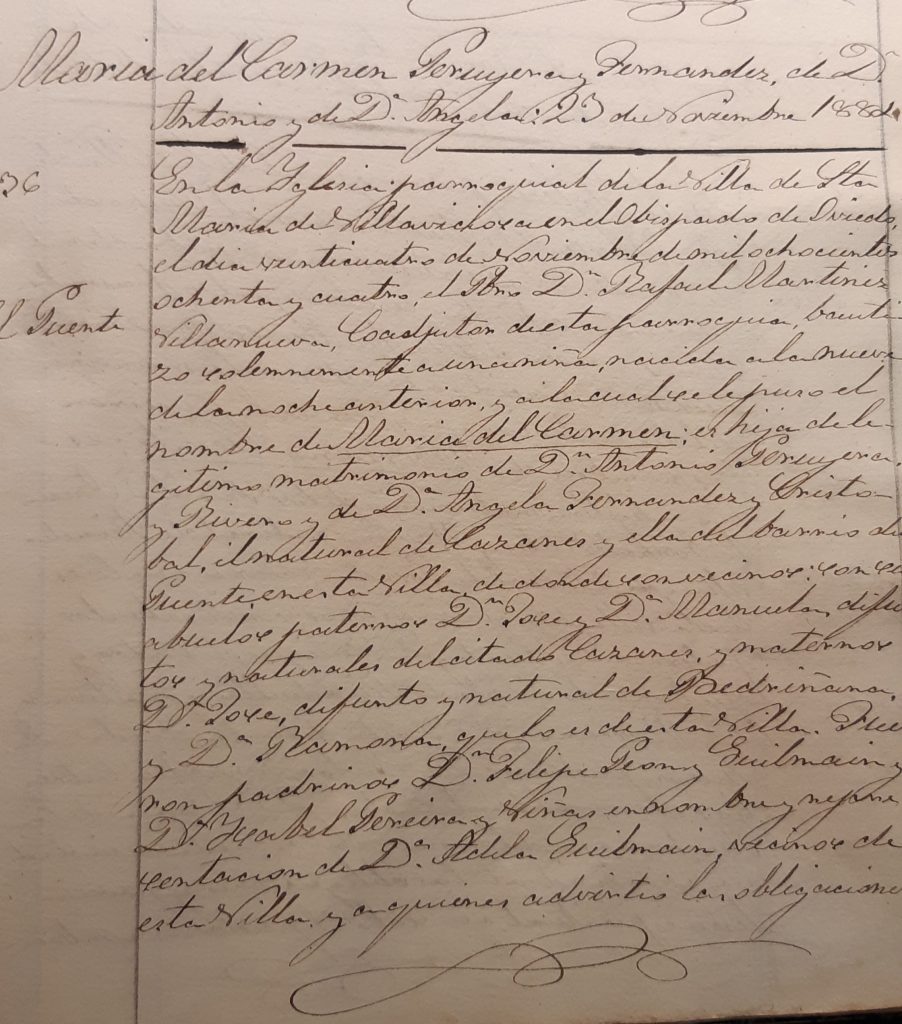 Maria del Carmen Peruyera y Fernandez, de Dⁿ
Antonio y de Dª Angela: 23 de Noviembre 1884.
36
En la Yglesia parroquial de la Villa de Sta
Maria de Villaviciosa en el Obispado de Oviedo,
el dia veinticuatro de Noviembre de mil ochocientos
ochenta y cuatro, el Pbro Dⁿ Rafael Martinez
l Puente
Villanueva, Coadjutor de esta parroquia, bauti-
zo solemnemente a una niña, nacida a la nueve
de la noche anterior, y a la cual se le puso el
nombre de Maria del Carmen; es hija de le-
gitimo matrimonio de Dⁿ Antonio Peruyera
y Rivero y de Dª Angela Fernandez y Cristo-
bal, el natural de Cazanes y ella del barrio del
Puente, en esta Villa, de donde son vecinos: son su
abuelos paternos Dⁿ Jose y Dª Manuela, difun
tos y naturales del citado Cazanes, y maternos
Dⁿ Jose, difunto y natural de Bedriñana,
y Dª Ramona, que lo es de esta Villa. Fue
ron padrinos Dⁿ Felipe Peon y Guilmain y
Dª Ysabel Pereira y Viñas en nombre y repre
sentacion de Dª Adela Guilmain, vecinos de
esta Villa y a quienes advirtio las obligacione